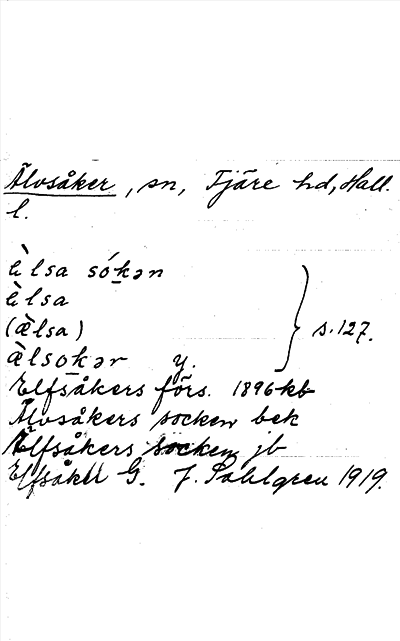 Älvsåker, sn, Fjäre hd, Hall.
l.
è̀lsa só̱kən
è̀lsa
(æ̀lsa) s. 127.
æ̀lso̱kər y.
Elfsåkers förs. 1896 kb
Älvsåkers socken bek
Elfsåkers socken jb
Elfsåker G. J. Sahlgren 1919.